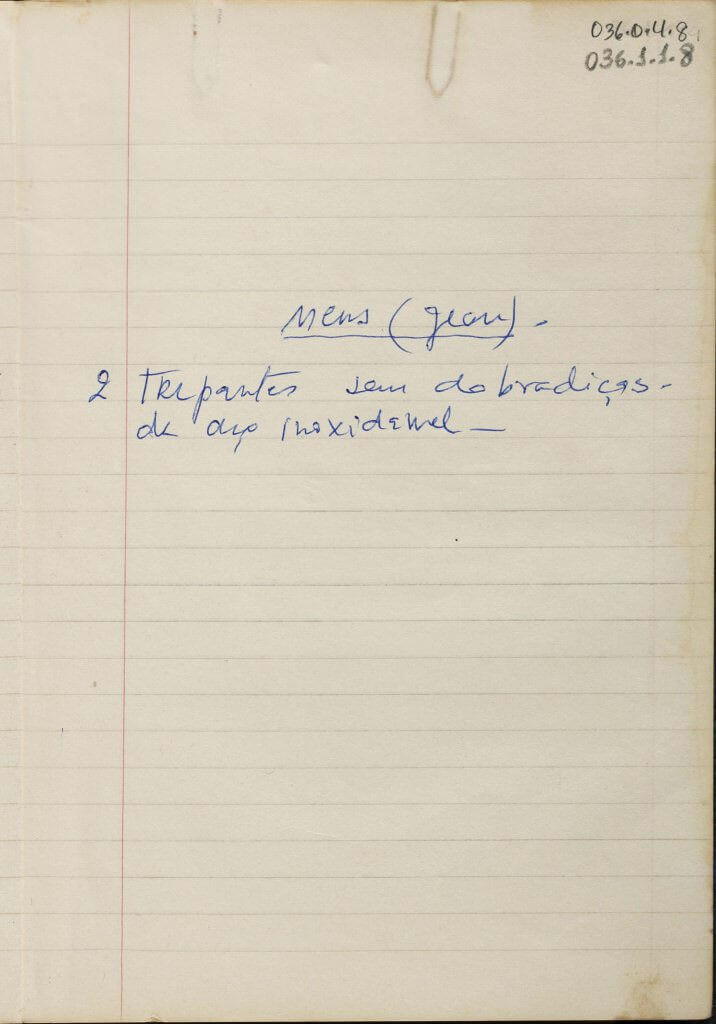 036.0.4.8
036.1.1.8
Mens (Jean).
2 Trepantes sem dobradiças.
de aço inoxidavel —